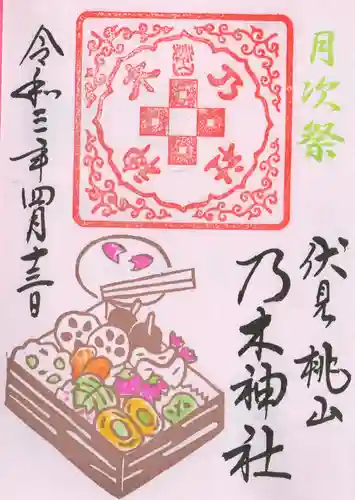 月次祭
伏見桃山
乃木神社
令和三年四月十三日